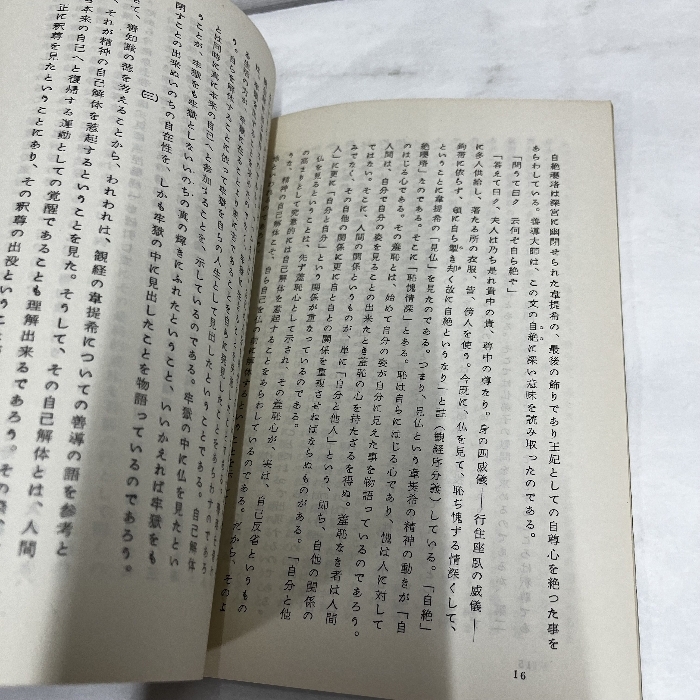 自絶瓔珞は深宮に幽閉せられた韋提希の、最後の飾りであり王妃としての自尊心を絶つた事を
あらわしている。善導大師は、この文の自絶に深い意味を読み取ったのである。
「問うて曰ク 云何ぞ自ら絶や」
「答えて曰ク、夫人は乃ち是れ貴中の貴、尊中の尊たり。身の四威儀――行住座臥の威儀――
に多人供給し、著たる所の衣服、皆、傍人を使う。今既に、仏を見て、恥ち愧ずる情深くして、
鉤帯に依らず、頓に自ら掣き却く故に自絶というなり」と註(観経序分義)している。「自絶」
というこの一句に、韋提希の「見仏」を見たのである。つまり、見仏という韋提希の精神の動きが「自
絶瓔珞」なのである。そこに「恥愧情深」とある。恥は自らにはじる心であり、愧は人に対して
のはじる心である。その羞恥は、始めて自分の姿が自分に見えた事を物語っているのであろう。
人間は、自分で自分の姿を見ることの出来たとき羞恥の心を持たざるを得ぬ。羞恥なき者は人間
ではない。そこに、人間の関係というものが、単に「自分と他人」という、即ち、自他の関係の
みでなく、その自他の関係に更に自と自との関係を重複させねばならぬものがある。「自分と他
人」に更に「自分と自分」という関係が重なっているのである。
仏を見るということは、先ず羞恥心として示され、その羞恥心が、実は、自己反省というもの
の高まりとして究竟的には自己解体を惹起することをあらわしているのである。だから、そのよ
うな、精神の自己解体こそ、
16
う。自らを解体することに依って牢獄を自らの人生として見出したということである。自己解体
とは同時に真に本来の自己へと参加することを、示しているのである。牢獄の中に仏を見たとい
うことが、牢獄をも牢獄としないいのちの真の輝きにふれたということ、いいかえれば牢獄をも
閉すことの出来ぬいのちの自在性を、しかも牢獄の中に見出したことを物語っているのであろう。
(三)
て、善知識の徳を考えることから、われわれは、観経の韋提希についての善導の語を参考と
、それが精神の自己解体を惹起するということを見た。そうして、その自己解体とは、人間
本来の自己へと復帰する運動としての覚醒であることも理解出来るであろう。その
正に釈尊を見たということにあり、その釈尊の出没という